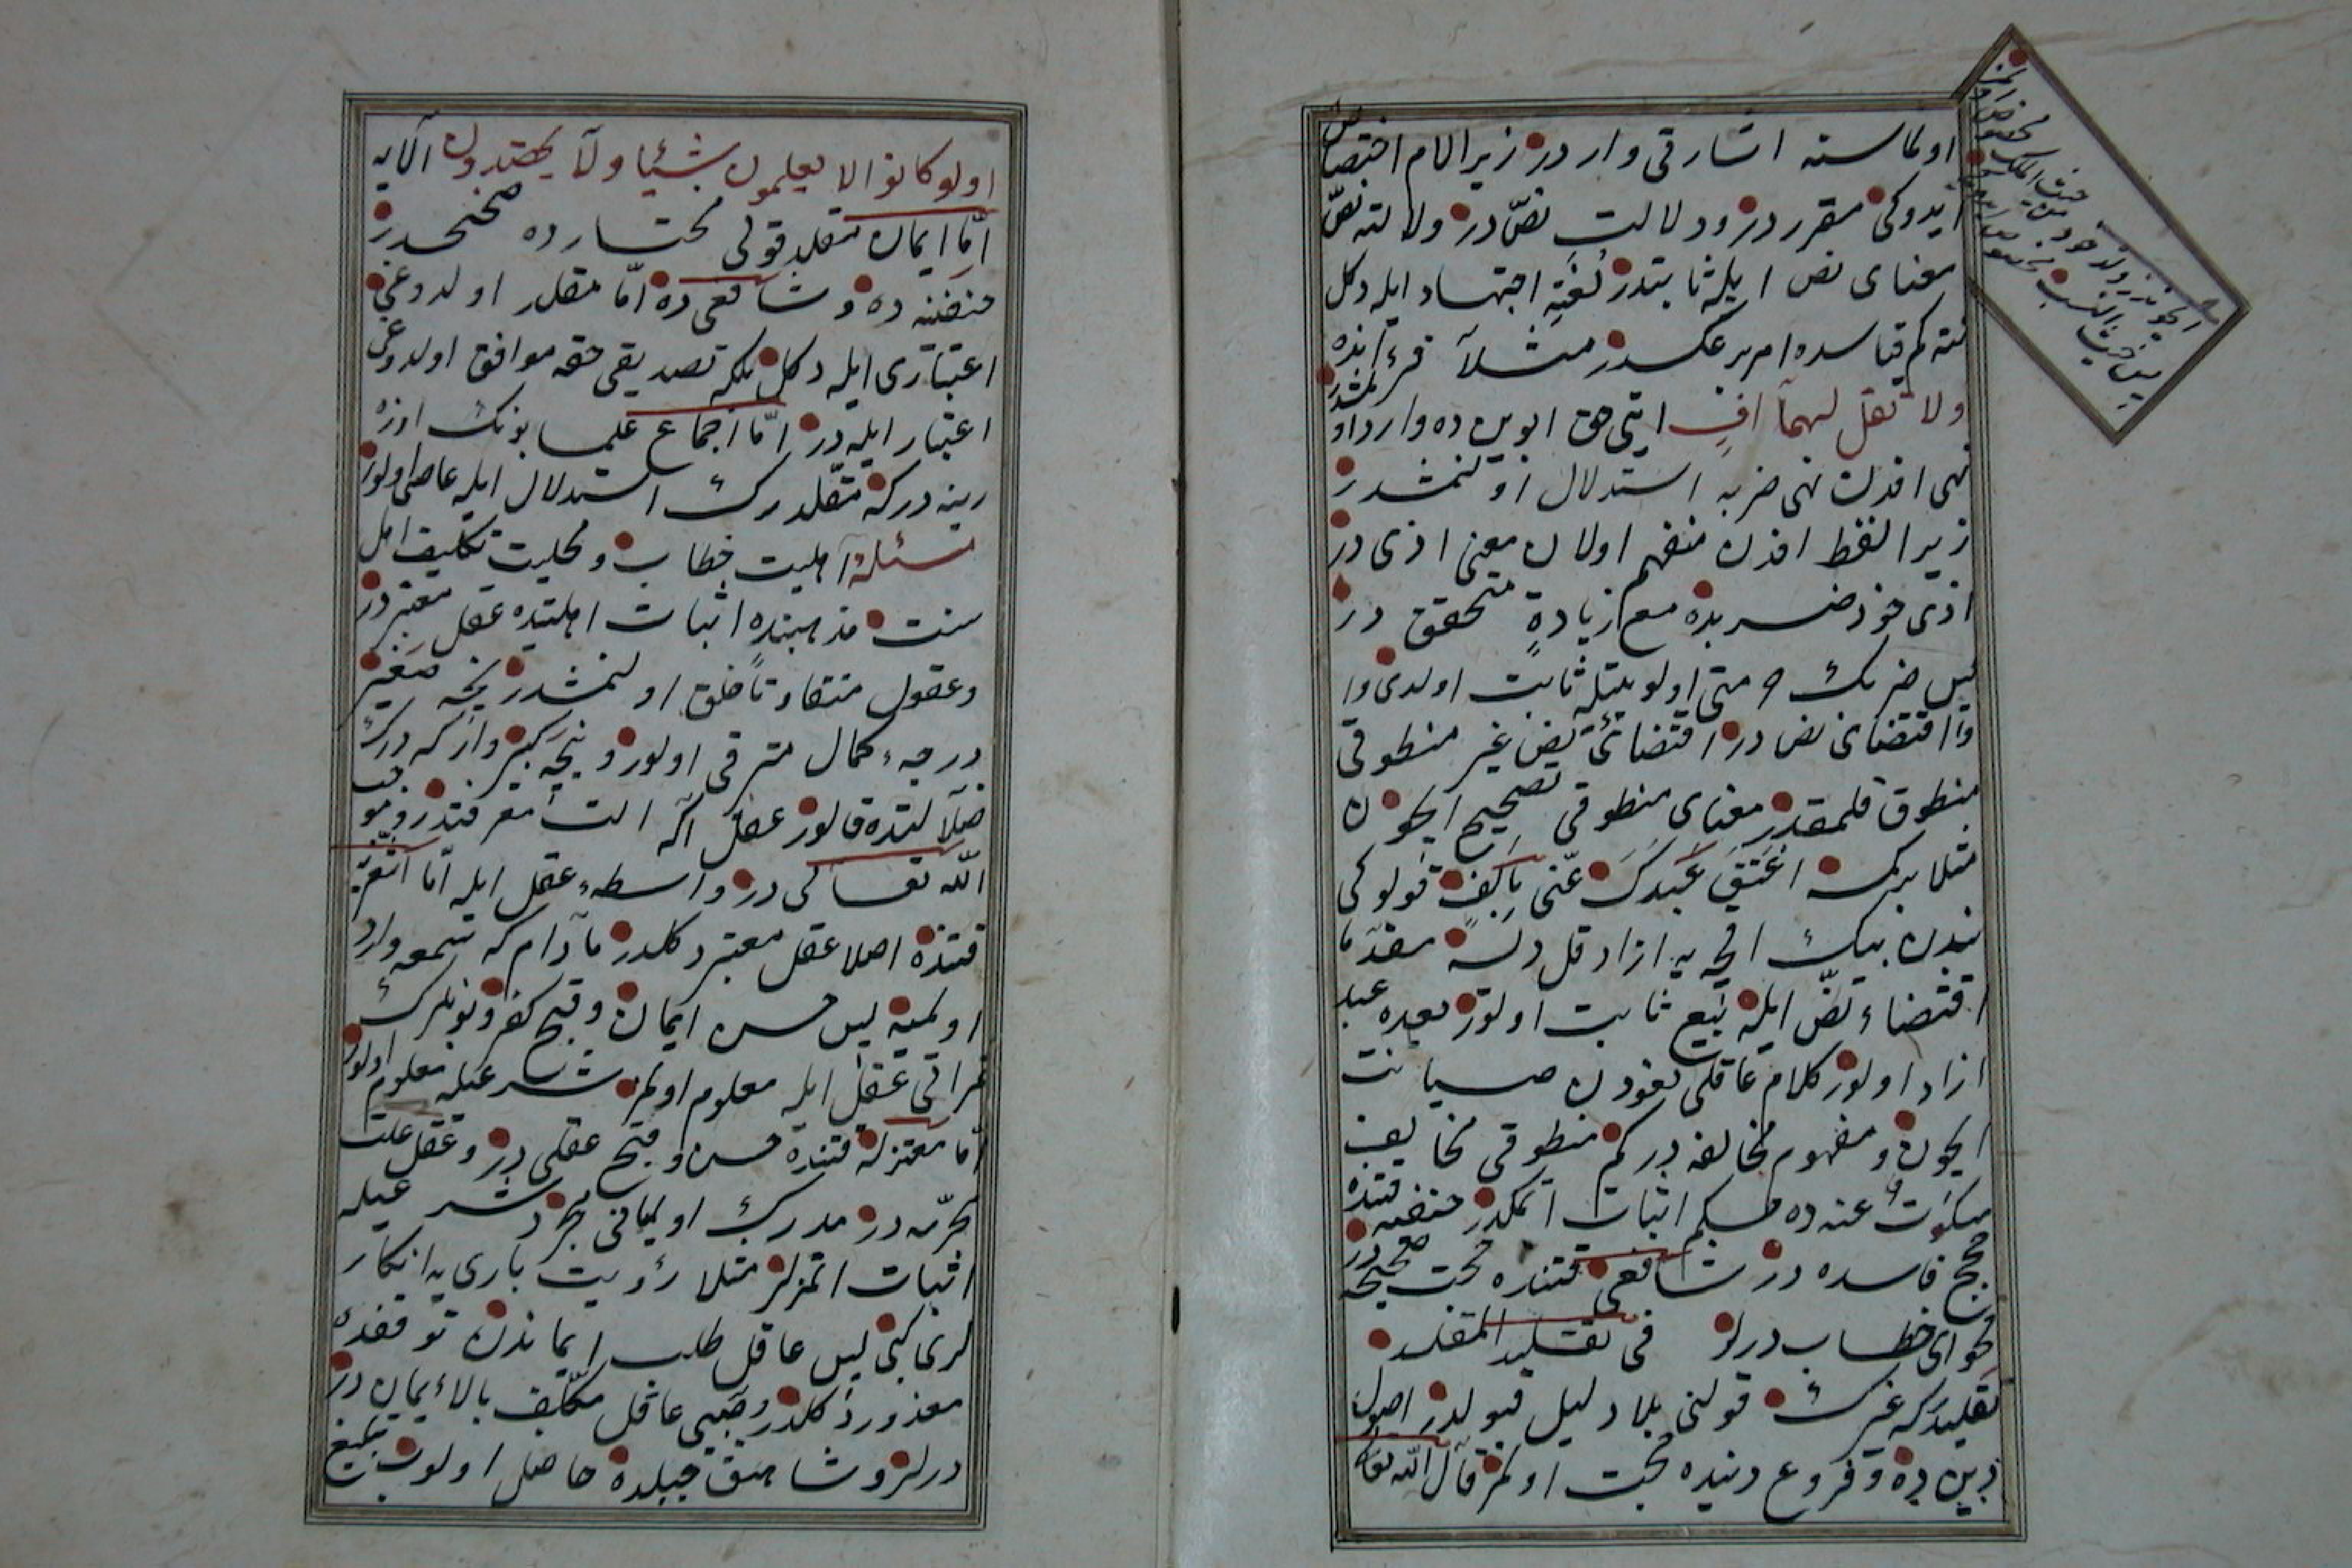 اولماسنه اشارتى واردر زيرا لام اختصاص
ايدوكى مقرردر ودلالتِ نصّ در ودلالته نصّ
معناى نص ايله ثابتدر لُغةً اجتهاد ايله دكل
نته كم قياسده امر بر عكسدر مثلاً قرآنده
ولا تقل لهمآ افٍ ايتى حق ابوين ده وارد اولمشدر
نهى افدن نهى ضربه استدلال اولنمشدر
زيرا لفظ افدن منفهم اولان معنى اذى در
اذى خود ضربده مع زيادةٍ متحقق در
پس ضربك حرمتى اولويتله ثابت اولدى و
اقتضاى نص در اقتضائُ نص غير منطوقى
منطوق قلمقدر معناى منطوقى تصحيح ايچون
مثلا بر كمسه اَعْتِقْ عَبْدَكَ عنّى بِاَلْفٍ قولو كى
بندن بيك اقچه يه ازاد قل دسه مقدما
اقتضاء نصّ ايله بَيع ثابت اولور بعده عبد
ازاد اولور كلام عاقلى لغودن صيانت
ايچون و مفهوم مخالفه در كم منطوقى مخالف
مسكوتٌ عنه ده حكم اثبات اتمكدر حنفيه قتنده
حجج فاسده در شافعى قتنده حجت صحيحه در
فحواى خطاب درلر فى تقليد المقلد
تقليد كه غيرك قولنى بلا دليل قبولدر اصول
دين ده و فروع دينده حجت اولمز قال الله تعالى
اولو كانوا لا يعلمون شيئا ولا يهتدون الآيه
امّا ايمان مقلد قول مختارده صحيحدر
حنفيه ده و شافعى ده امّا مقلد اولدوغى
اعتبارى ايله دكل بلكه تصديقى حقه موافق اولدوغى
اعتبار ايله در امّا اجماع علما بونك اوزرينه
در كه مقلد ترك استدلال ايله عاصى اولور
مسئله اهليت خطاب و محليت تكليف اهل
سنت مذهبنده اثبات اهليتده عقل معتبردر
وعقول متفاوتاً خلق اولنمشدر نيجه صغير
درجهء كمال مترقى اولور و نيجه كبير واركه درك
ضلالتده قالور عقل اكر الت معرفتدر و موجب
الله تعالى در واسطهء عقل ايله امّا اشعريه
قتنده اصلا عقل معتبر دكلدر مادام كه سمع وارد
اولميه پس حسن ايمان و قبح كفر و بونلرك
ثمراتى عقل ايله معلوم اولمز شرعيله معلوم اولور
امّا معتزله قتنده حسن و قبح عقلى در و عقل علت
محرمه در مدرك اولميانى مجرد شرعيله
اثبات اتمزلر مثلا رؤيت بارى يه انكار
لرى كبى پس عاقل طلب ايماندن توقفده
معذور دكلدر و صبىِ عاقل مكلّف بالايمان در
درلر و شاهق جبلده حاصل اولوب تبليغ